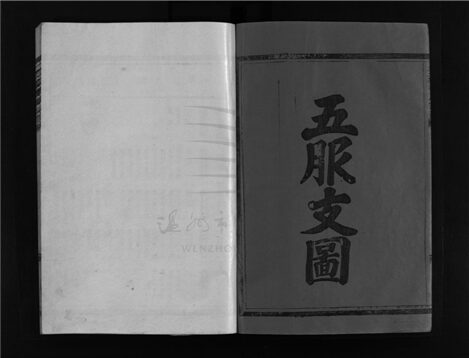 五服支圖
溫州市
WENZHO